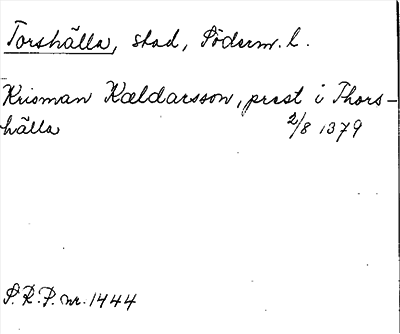 Torshälla, stad, Söderm. l.
Krisman Kældarsson, prest i Thors-
hälla 2/8 1379
S. R. P. nr. 1444